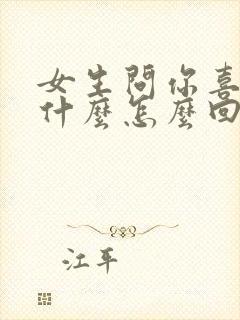 女生問你喜
什麼怎麼回
江平